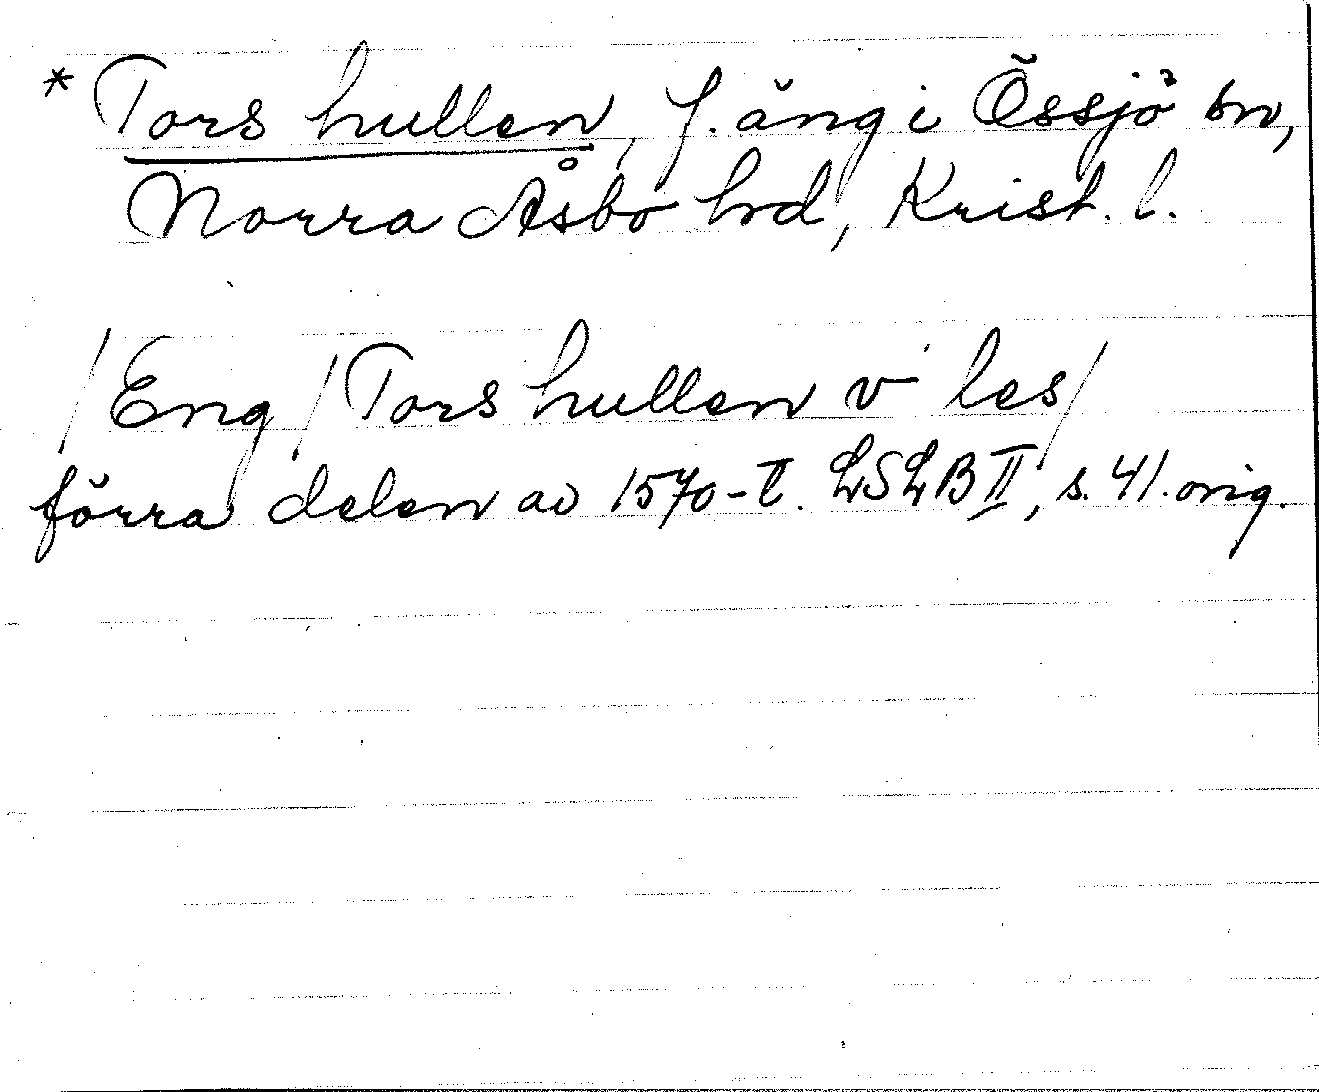 * Tors hullen, f. äng i Össjö sn,
Norra Åsbo hrd, Krist. l.
/Eng/ Tors hullen v les/
förra delen av 1570-t. LSLB II, s. 41. orig.